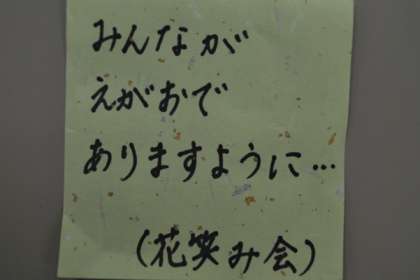 みんなが
えがおで
ありますように…
(花笑み会)